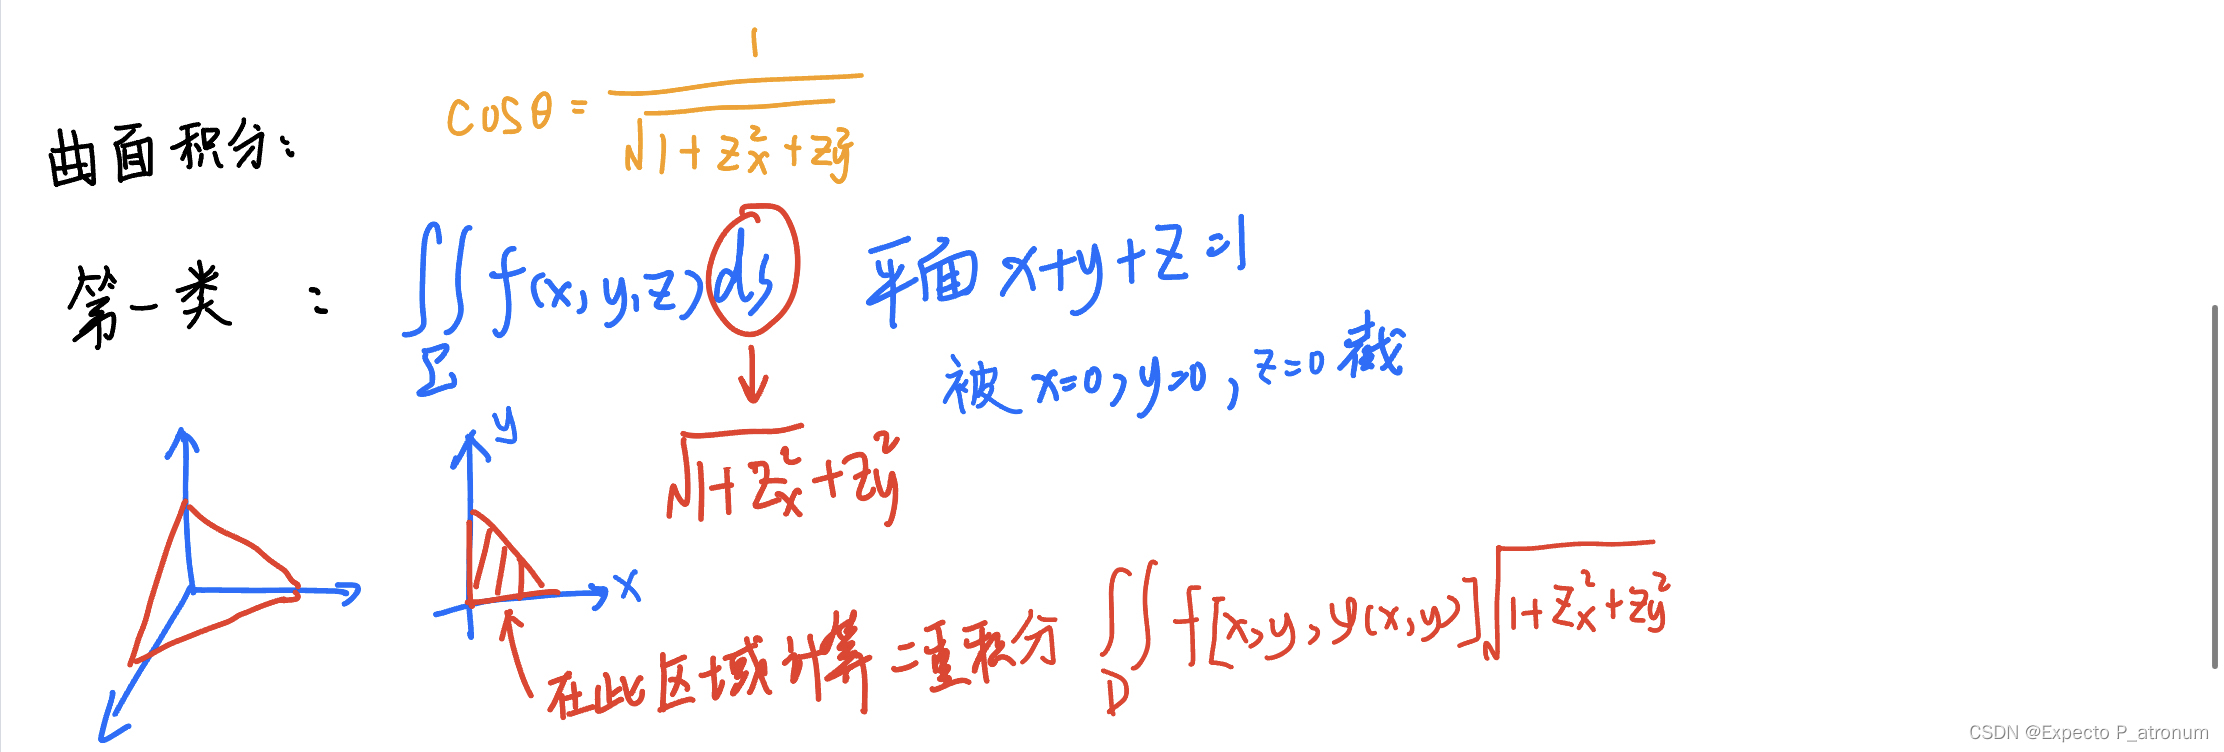 曲面积分: cosθ = 1/√(1+z_x²+z_y²)
第一类: ∬_Σ f(x,y,z)ds 平面 x+y+z=1
被 x=0,y=0,z=0 截
√(1+z_x²+z_y²)
y
x
在此区域计算二重积分 ∬_D f[x,y,φ(x,y)]√(1+z_x²+z_y²)
CSDN @Expecto P_atronum